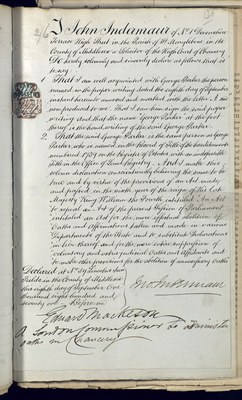 I John Indermaur of No. 1 Devonshire
Terrace High Street in the Parish of St. Marylebone in the
County of Middlesex a Solicitor of the High Court of Chancery
Do hereby solemnly and sincerely declare as follows that is
to say
1. That I am well acquainted with George Parker the person
named in the paper writing dated the eighth day of September
instant hereunto annexed and marked with the letter A and
now produced to me. That I saw him sign the said paper
writing and that the name George Parker at the foot
thereof is the hand writing of the said George Parker.
2. That the said George Parker is the same person as George
Parker who is named in the
numbered 1709 in the Register of
in the Office of And I make this
solemn declaration conscientiously believing the same to be
true and by virtue of the provisions of an Act made
and passed in the sixth year of the reign of His late
Majesty King William the Fourth intituled An Act
to repeal an Act of the present Session of Parliament
intituled an Act for the more effectual abolition of
Oaths and Affirmations taken and made in various
Departments of the State and to substitute Declarations
in lieu thereof and for the more entire suppression of
voluntary and extra judicial Oaths and Affidavits and
to make other provisions for the abolition of unnecessary Oaths
Declared at No.
Fields in the County of Middlesex
this eighth day of September One
thousand eight hundred and
seventy Before me
Jno Indermaur
Edward Mackeson
A London Commissioner to administer
oaths in Chancery